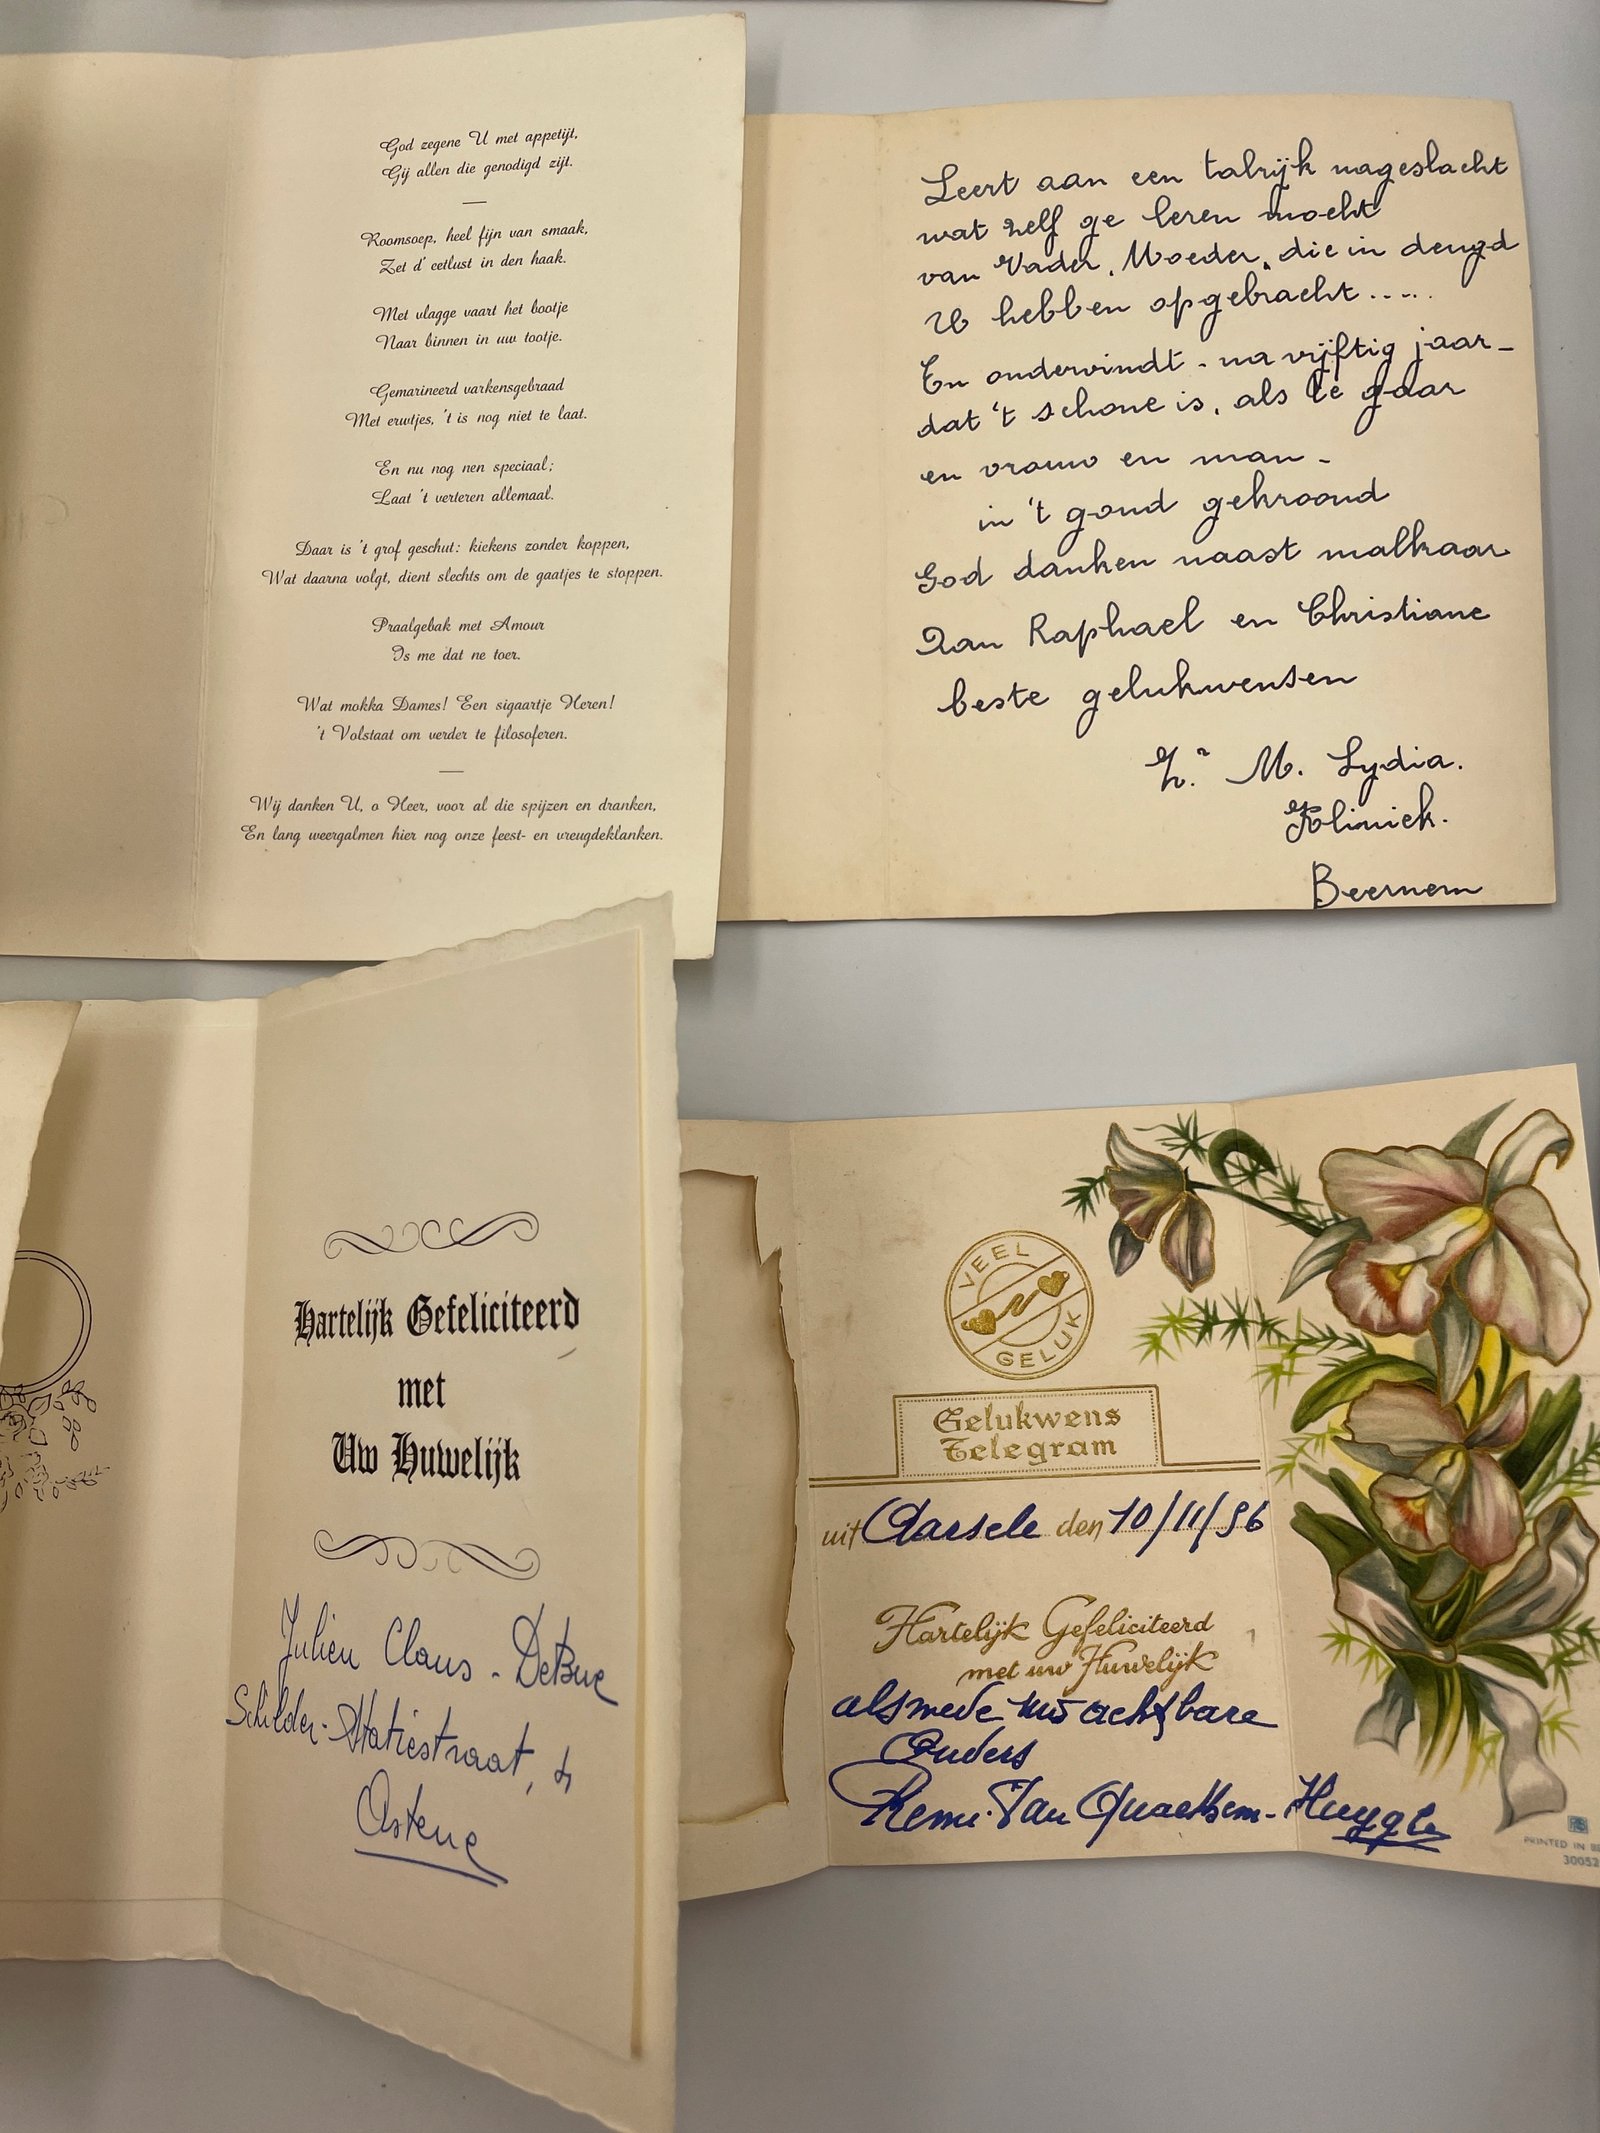 God zegene U met appetijt,
Gij allen die genodigd zijt.
Roomsoep, heel fijn van smaak,
Zet d' eetlust in den haak.
Met vlagge vaart het bootje
Naar binnen in uw tootje.
Gemarineerd varkensgebraad
Met erwtjes, 't is nog niet te laat.
En nu nog nen speciaal;
Laat 't verteren allemaal.
Daar is 't grof geschut: kiekens zonder koppen,
Wat daarna volgt, dient slechts om de gaatjes te stoppen.
Praalgebak met Amour
Is me dat ne toer.
Wat mokka Dames! Een sigaartje Heren!
't Volstaat om verder te filosoferen.
Wij danken U, o Heer, voor al die spijzen en dranken,
En lang weergalmen hier nog onze feest- en vreugdeklanken.
Leert aan een talrijk nageslacht
wat zelf ge leren mocht
van Vader, Moeder, die in deugd
U hebben opgebracht.....
En ondervindt - na vijftig jaar -
dat 't schone is, als te gaar
en vrouw en man -
in 't goud gekroond
God danken naast malkaar
Aan Raphael en Christiane
beste gelukwensen
Zr. M. Lydia.
Kliniek.
Beernem
Hartelijk Gefeliciteerd
met
Uw Huwelijk
Julien Claus - DeBue
Schilder - Statiestraat,
Astene
VEEL
GELUK
Gelukwens
Telegram
uit Aarsele den 10/11/56
Hartelijk Gefeliciteerd
met uw Huwelijk
alsmede uw achtbare
Ouders
Remi Van Quaethem - Huyghe
PRINTED IN BE
30052